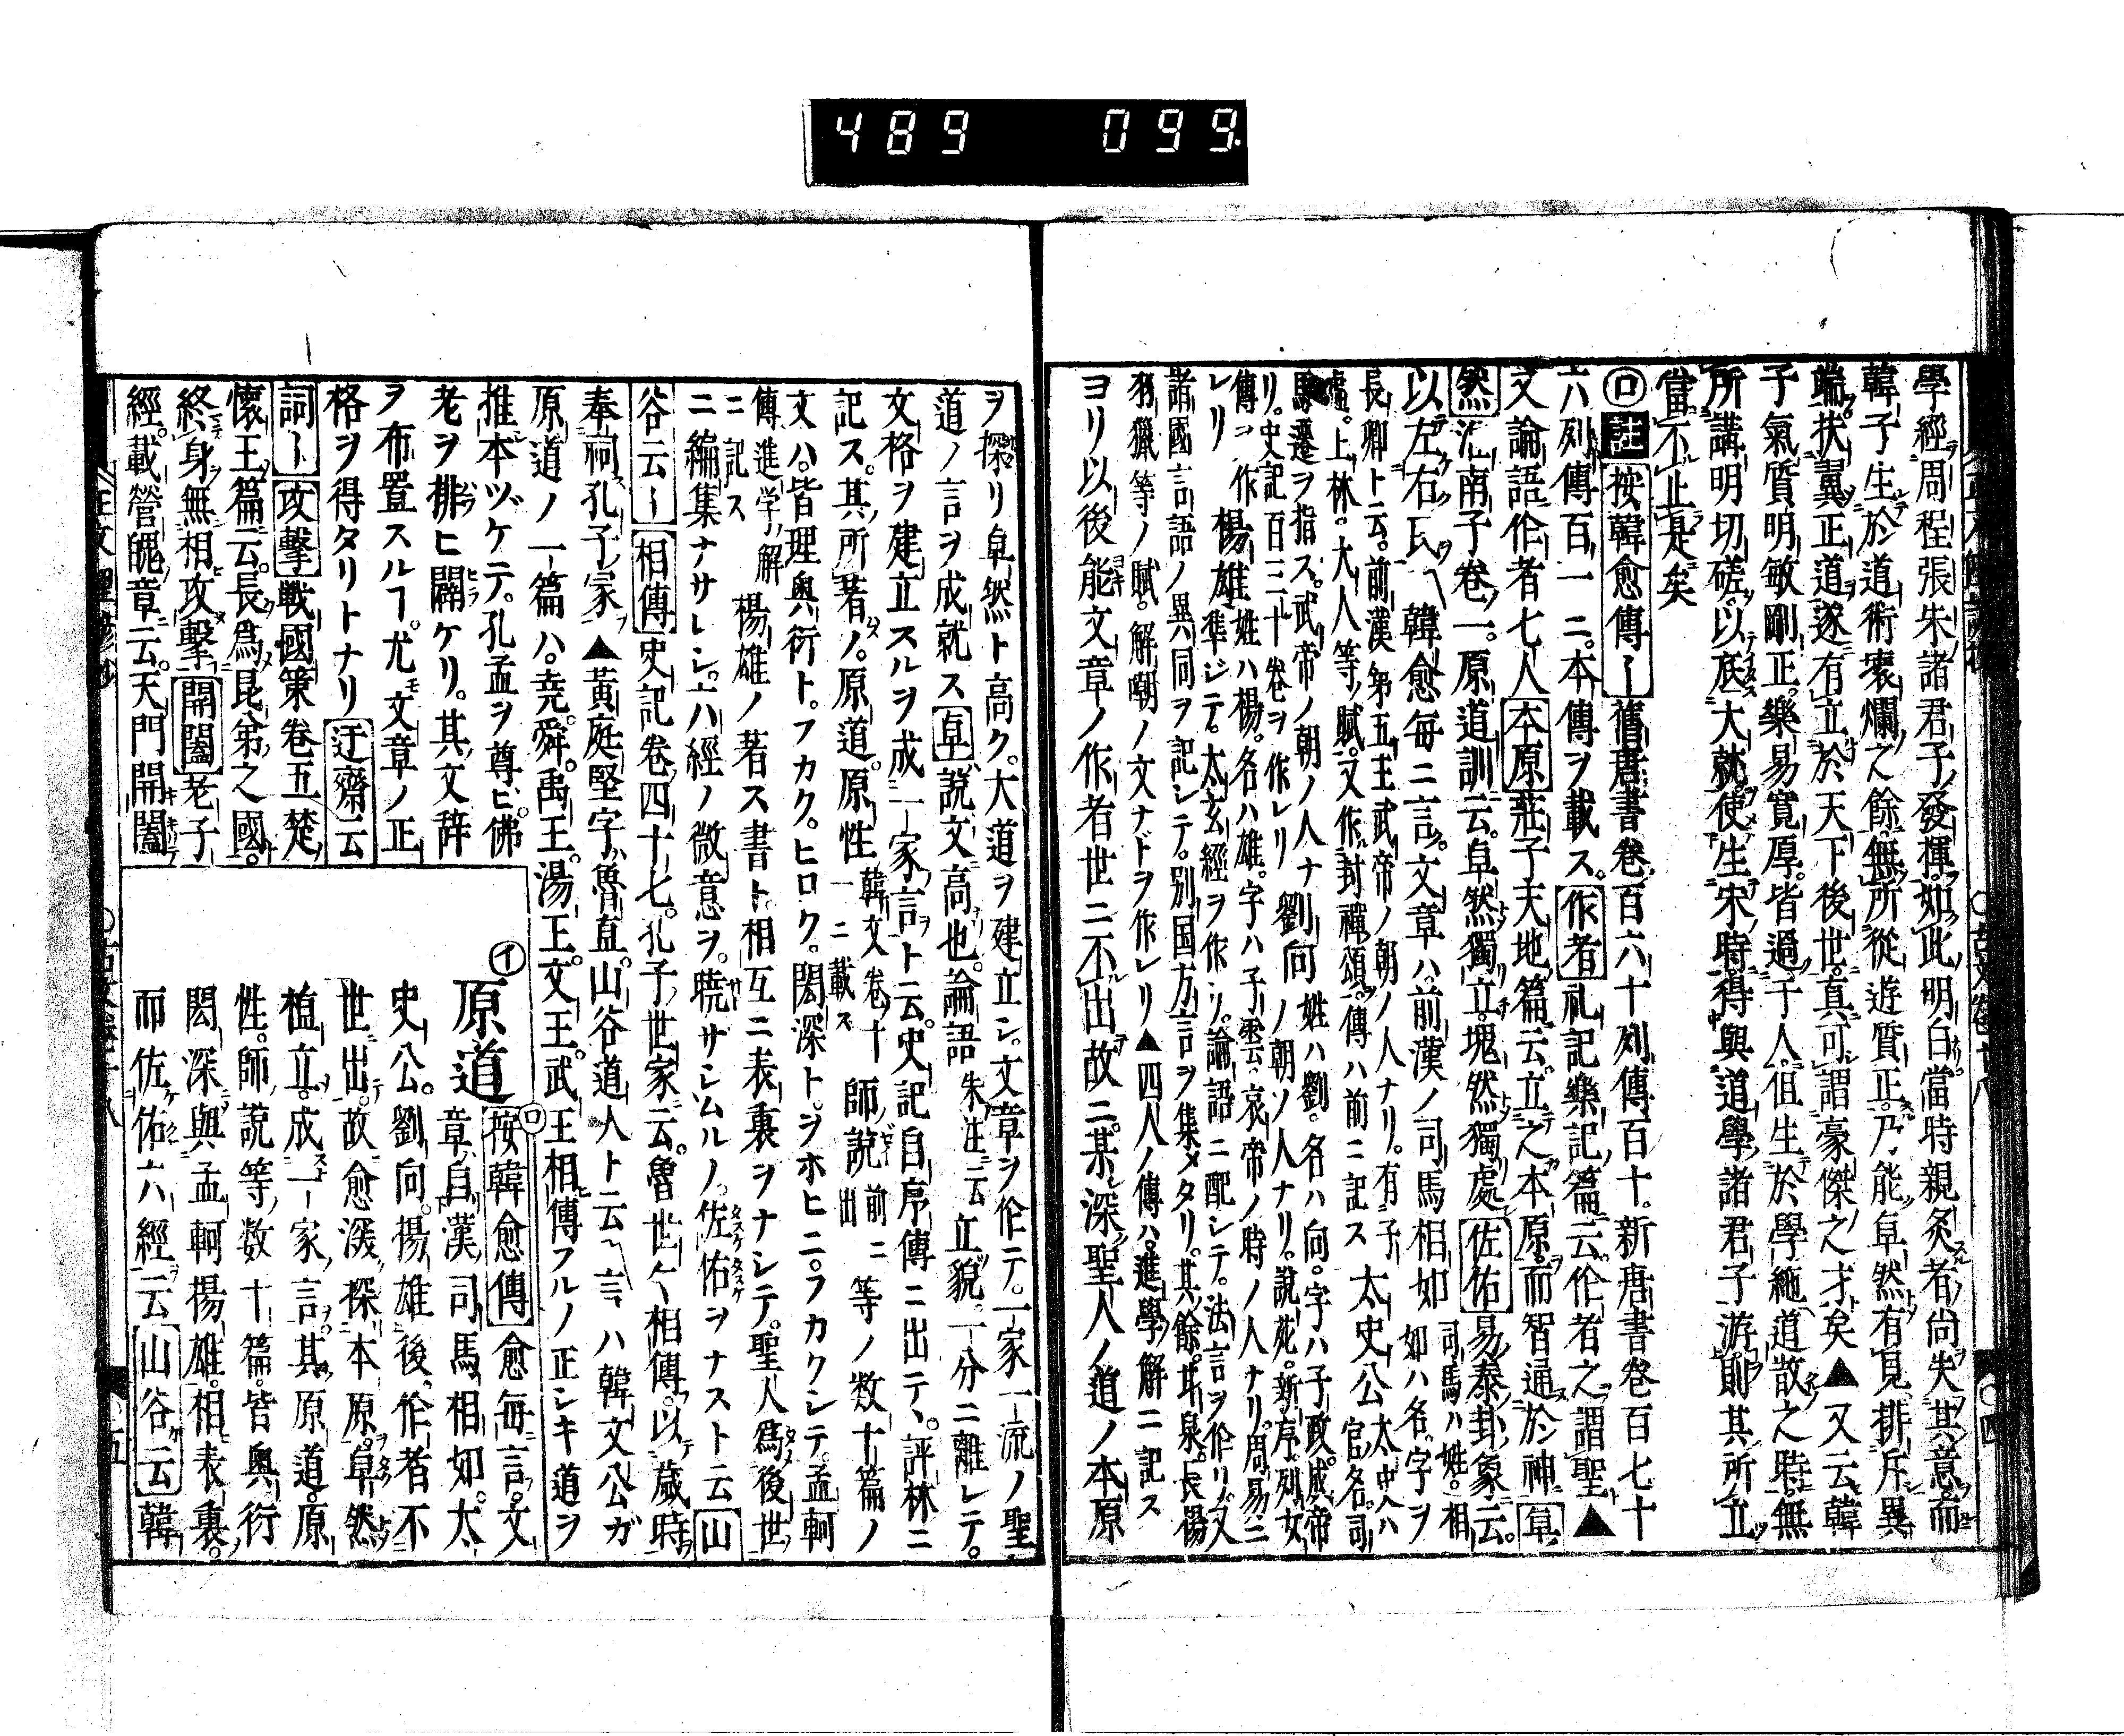 489 099.
學經周程張朱諸君子發揮如此明白當時親炙者尚失其意而
韓子生於道術壞爛之餘無所從遊質正乃能卓然有見排斥異
端扶翼正道遂有立於天下後世真可謂豪傑之才矣▲又云韓
子氣質明敏剛正樂易寬厚皆過于人但生於學絶道散之時無
所講明切磋以底大就使生宋時得與道學諸君子游則其所立
當不止是矣
㋺註按韓愈傳〡舊唐書卷百六十列傳百十。新唐書卷百七十
六列傳百一ニ。本傳ヲ載ス。作者礼記樂記篇云作者之謂聖▲
又論語作者七人本原莊子天地篇云立之本原而智通於神卓
然淮南子卷一。原道訓云。卓然獨立塊然獨處佐佑易泰卦象云。
以左右民〽韓愈毎ニ言。文章ハ前漢ノ司馬相如司馬ハ姓。相如ハ名字ヲ
長卿ト云。前漢第五主武帝ノ朝ノ人ナリ。有子
虚。上林。大人等ノ賦。又作封禪頌。傳ハ前ニ記ス太史公太史ハ官名。司
馬遷ヲ指ス。武帝ノ朝ノ人ナ
リ。史記百三十卷ヲ作レリ劉向姓ハ劉。名ハ向。字ハ子政。成帝ノ朝ノ人ナリ。說苑。新序。列女
傳ヲ作レリ楊雄姓ハ楊。名ハ雄。字ハ子雲。哀帝ノ時ノ人ナリ。周易ニ
準ジテ。太玄經ヲ作リ。論語ニ配シテ。法言ヲ作リ。又
諸國言語ノ異同ヲ記シテ。別国方言ヲ集メタリ。其餘。甘泉。長楊
羽獵等ノ賦。解嘲ノ文ナドヲ作レリ▲四人ノ傳ハ。進學解ニ記ス
ヨリ以後能文章ノ作者世ニ不出故ニ。某深聖人ノ道ノ本原
ヲ探リ卓然ト高ク。大道ヲ建立シ。文章ヲ作テ。一家一流ノ聖
道ノ言ヲ成就ス卓說文高也。論語朱注云立貌。一分ニ離レテ。
文格ヲ建立スルヲ成一家言ト云。史記自序傳ニ出テ、評林ニ
記ス。其所著ノ。原道。原性韓文卷十一ニ載ス師說前ニ出等ノ数十篇ノ
文ハ。皆理奥衍ト。フカク。ヒロク。閎深ト。ヲホヒニ。フカクシテ。孟軻
傳進学解ニ記ス楊雄ノ著ス書ト。相互ニ表裏ヲナシテ。聖人為後世
ニ編集ナサレシ。六經ノ微意ヲ。暁サシムルノ。佐佑ヲナスト云山
谷云〡相傳史記卷四十七。孔子世家云。魯世〻相傳。以歳時
奉祠孔子冢▲黄庭堅字魯直。山谷道人ト云〽言ハ韓文公ガ
原道ノ一篇ハ。堯。舜。禹王。湯王。文王。武王相傳フルノ正シキ道ヲ
推本ヅケテ。孔孟ヲ尊ヒ。佛
老ヲ排ヒ闢ケリ。其文辞
ヲ布置スルヿ。尤文章ノ正
格ヲ得タリトナリ迂齋云
詞〡攻擊戰國策卷五楚
懷王篇云。長為昆弟之國。
終身無相攻擊開闔老子
經。載營魄章云。天門開闔
㋑原道㋺按韓愈傳愈毎言。文
章自漢司馬相如。太
史公。劉向。揚雄後。作者不
世出。故愈深探本原。卓然
植立。成一家言。其原道。原
性。師說等。数十篇。皆奥衍
閎深與孟軻揚雄。相表裏。
而佐佑六經云山谷云韓